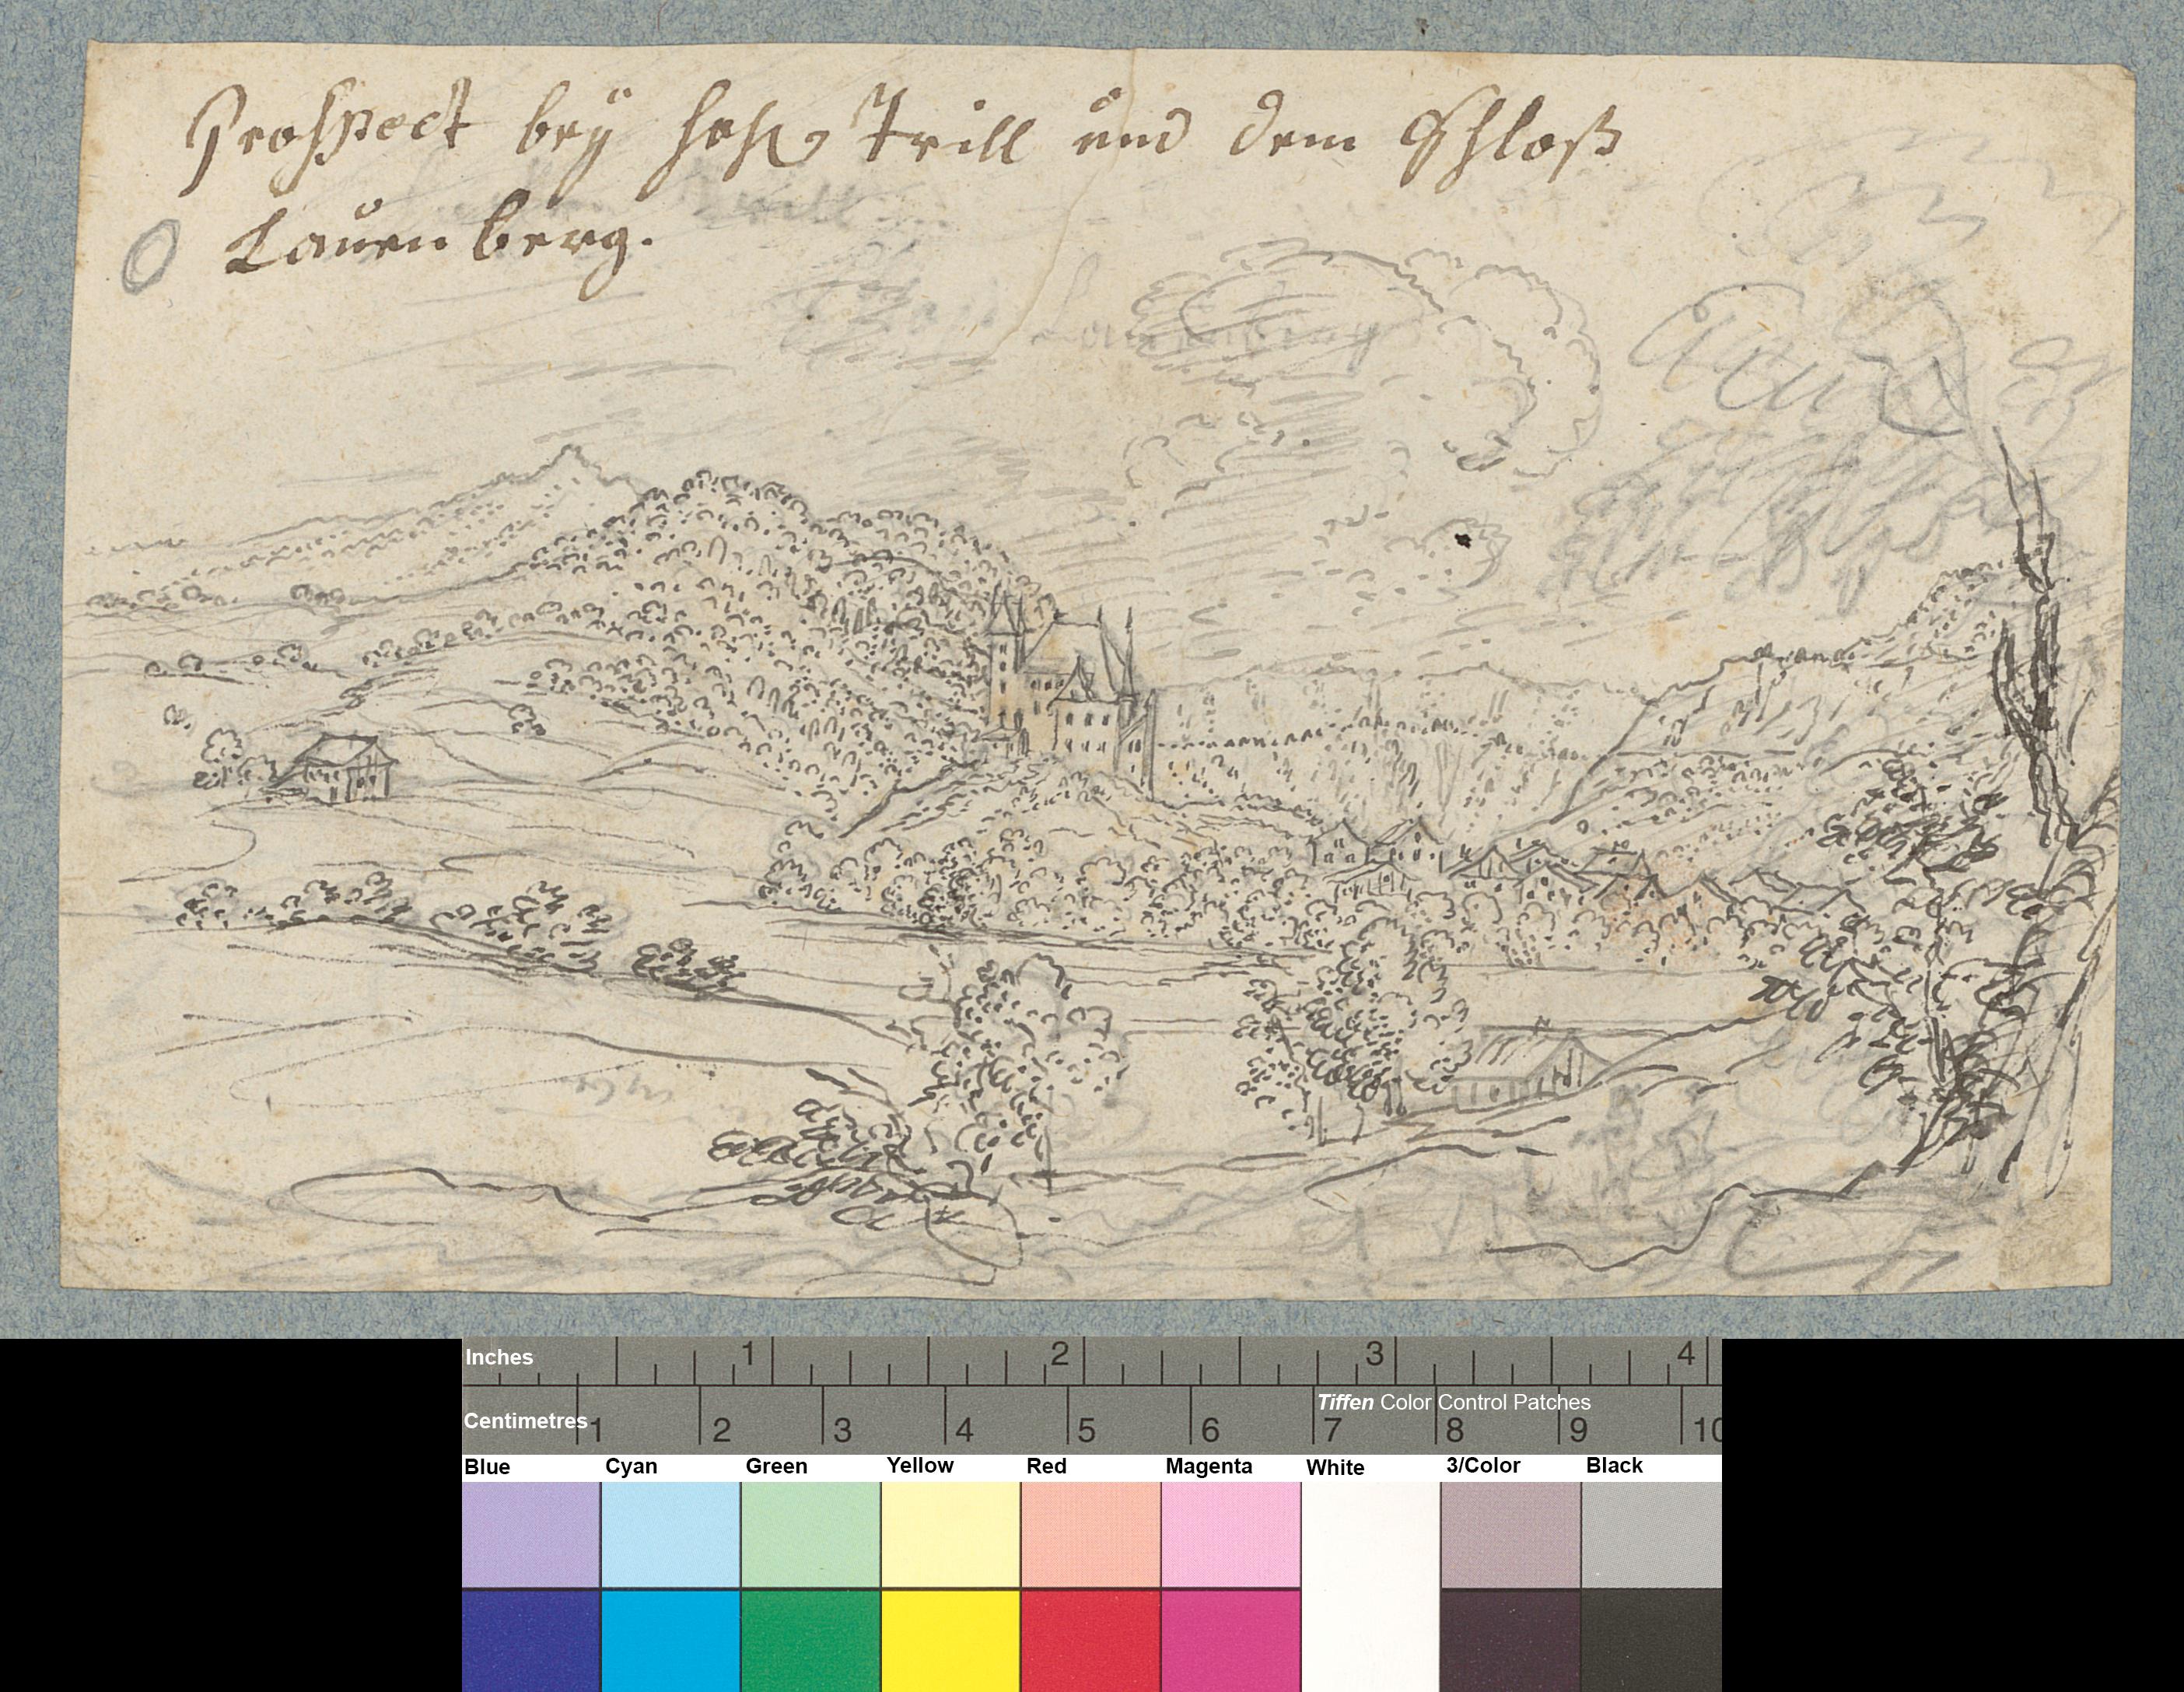 Prospect bey Trill und dem Schloß
Lauenberg.
Lauenberg
Inches 1 2 3 4
Tiffen Color Control Patches
Centimetres 1 2 3 4 5 6 7 8 9 10
Blue Cyan Green Yellow Red Magenta White 3/Color Black